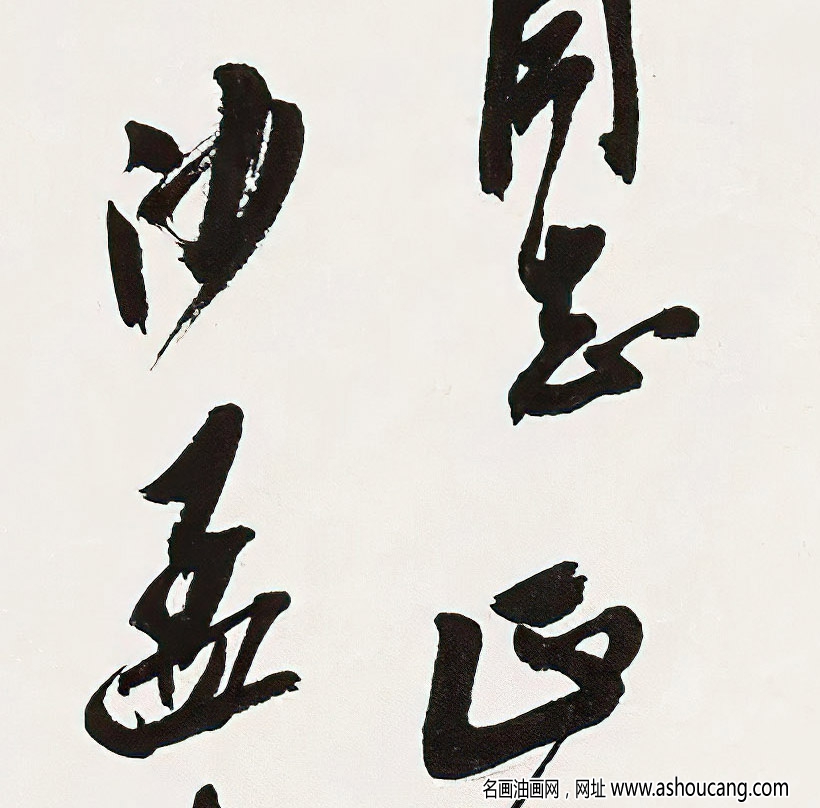 同志正
沙孟
名画油画网，网址 www.ashoucang.com